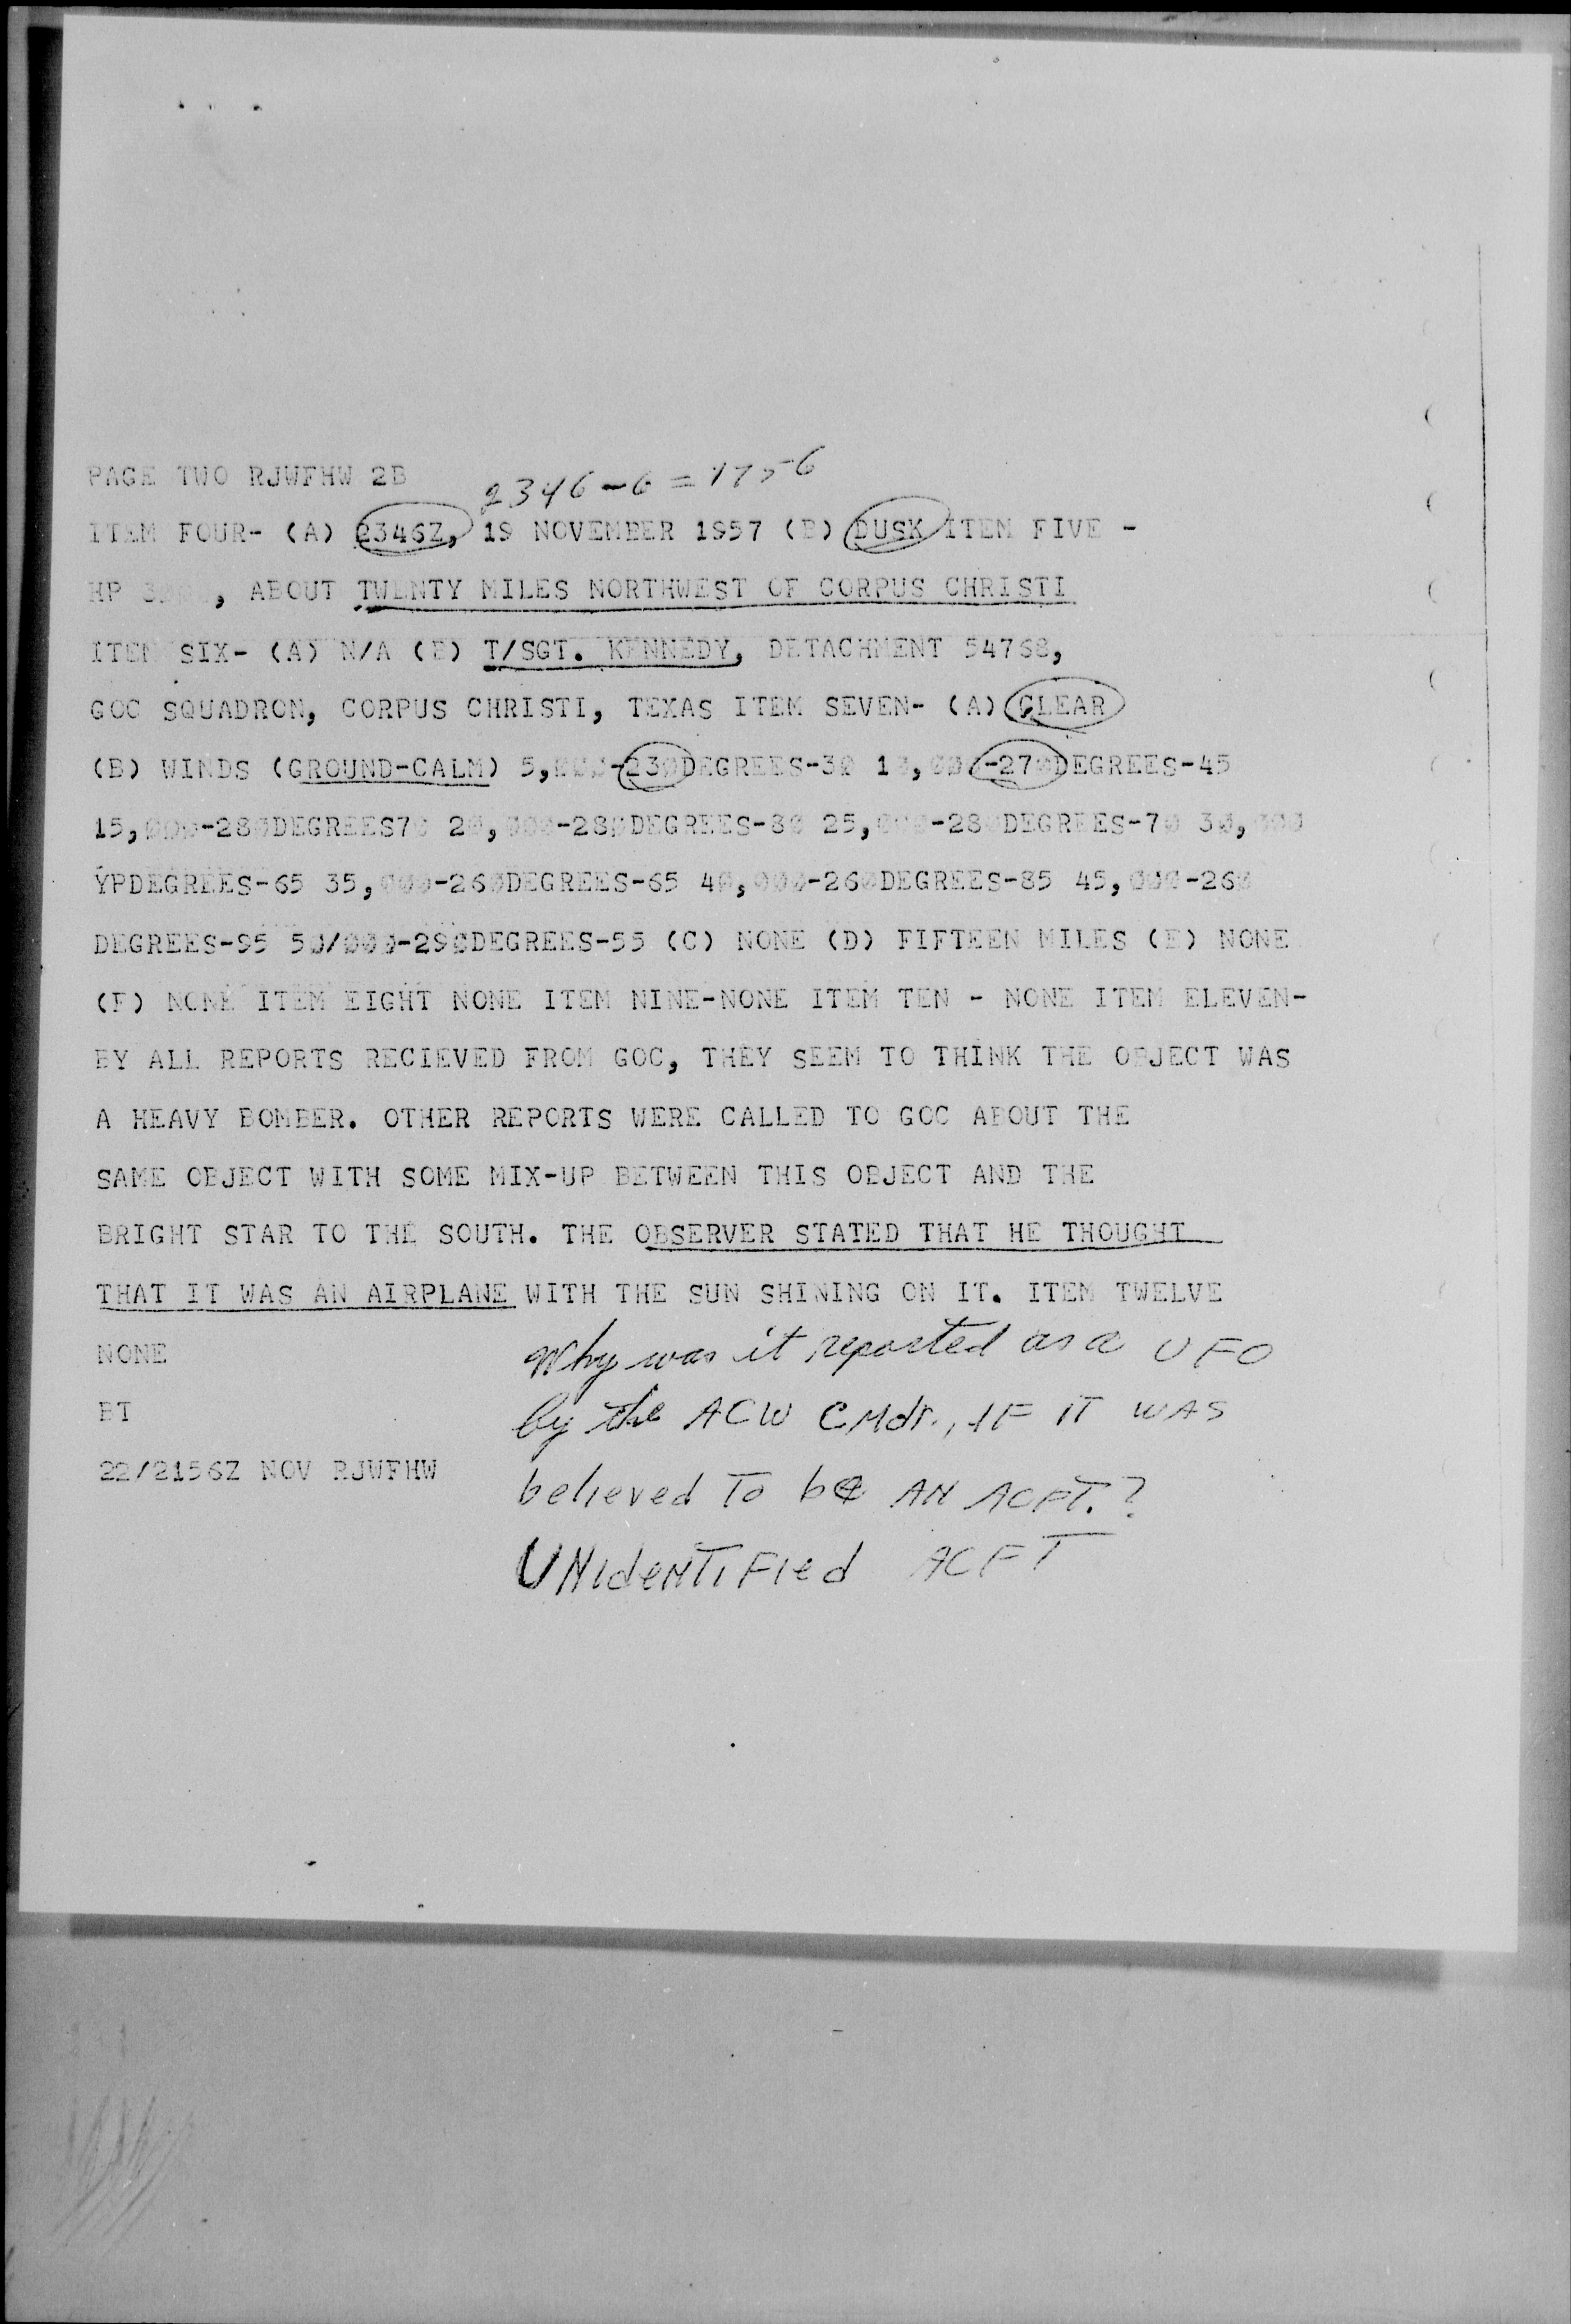 PAGE TWO RJWFHW 2B
2346-6=1756
ITEM FOUR- (A) 2346Z, 19 NOVEMBER 1957 (B) DUSK ITEM FIVE -
HP , ABOUT TWENTY MILES NORTHWEST OF CORPUS CHRISTI
ITEM SIX- (A) N/A (B) T/SGT. KENNEDY, DETACHMENT 54768,
GOC SQUADRON, CORPUS CHRISTI, TEXAS ITEM SEVEN- (A) CLEAR
(B) WINDS (GROUND-CALM) 5,000-230DEGREES-30 10,000-270DEGREES-45
15,000-280DEGREES70 20,000-280DEGREES-80 25,000-280DEGREES-70 30,000
YPDEGREES-65 35,000-260DEGREES-65 40,000-260DEGREES-85 45,000-260
DEGREES-95 50/000-290DEGREES-55 (C) NONE (D) FIFTEEN MILES (E) NONE
(F) NONE ITEM EIGHT NONE ITEM NINE-NONE ITEM TEN - NONE ITEM ELEVEN-
BY ALL REPORTS RECIEVED FROM GOC, THEY SEEM TO THINK THE OBJECT WAS
A HEAVY BOMBER. OTHER REPORTS WERE CALLED TO GOC ABOUT THE
SAME OBJECT WITH SOME MIX-UP BETWEEN THIS OBJECT AND THE
BRIGHT STAR TO THE SOUTH. THE OBSERVER STATED THAT HE THOUGHT
THAT IT WAS AN AIRPLANE WITH THE SUN SHINING ON IT. ITEM TWELVE
NONE
BT
22/2156Z NOV RJWFHW
Why was it reported as a UFO
by the ACW CMdr., IF IT WAS
believed To be AN ACFT.?
UNIdeNTIFIed ACFT